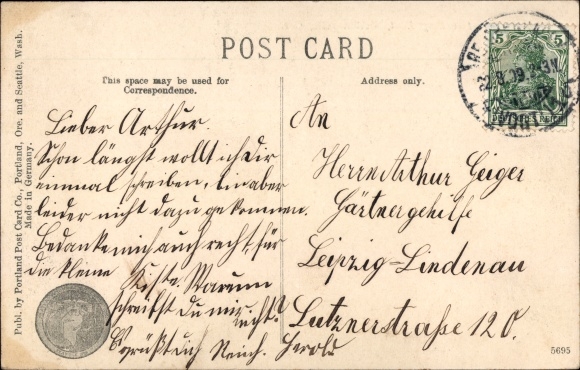 POST CARD
This space may be used for
Correspondence.
Address only.
Publ. by Portland Post Card Co., Portland, Ore. and Seattle, Wash.
Made in Germany.
5
5
DEUTSCHES REICH
Lieber Arthur.
Schon längst wollt ich dir
einmal schreiben, bin aber
leider nicht dazu gekommen.
Bedanke mich auch recht für
die kleine Kiste. Warum
schreibst du mir nicht?
Es grüßt dich Reich. Herold
An
Herrn Arthur Geiger
Gärtnergehilfe
Leipzig-Lindenau
Lutznerstraße 120.
5695